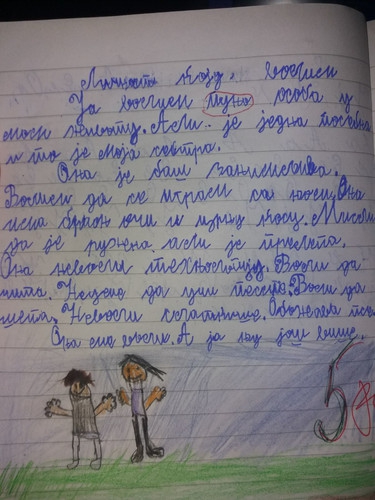 Личност коју волим
Ја волим пуно особа у
мом животу. Али је једна посебна
и то је моја сестра.
Она је баш занимљива.
Волим да се играм са њом. Она
има браон очи и црну косу. Мисли
да је ружна али је прелепа.
Она не воли технологију. Воли да
чита.
да учи
Воли да
Не воли
Она
воли. А ја њу још више.
5